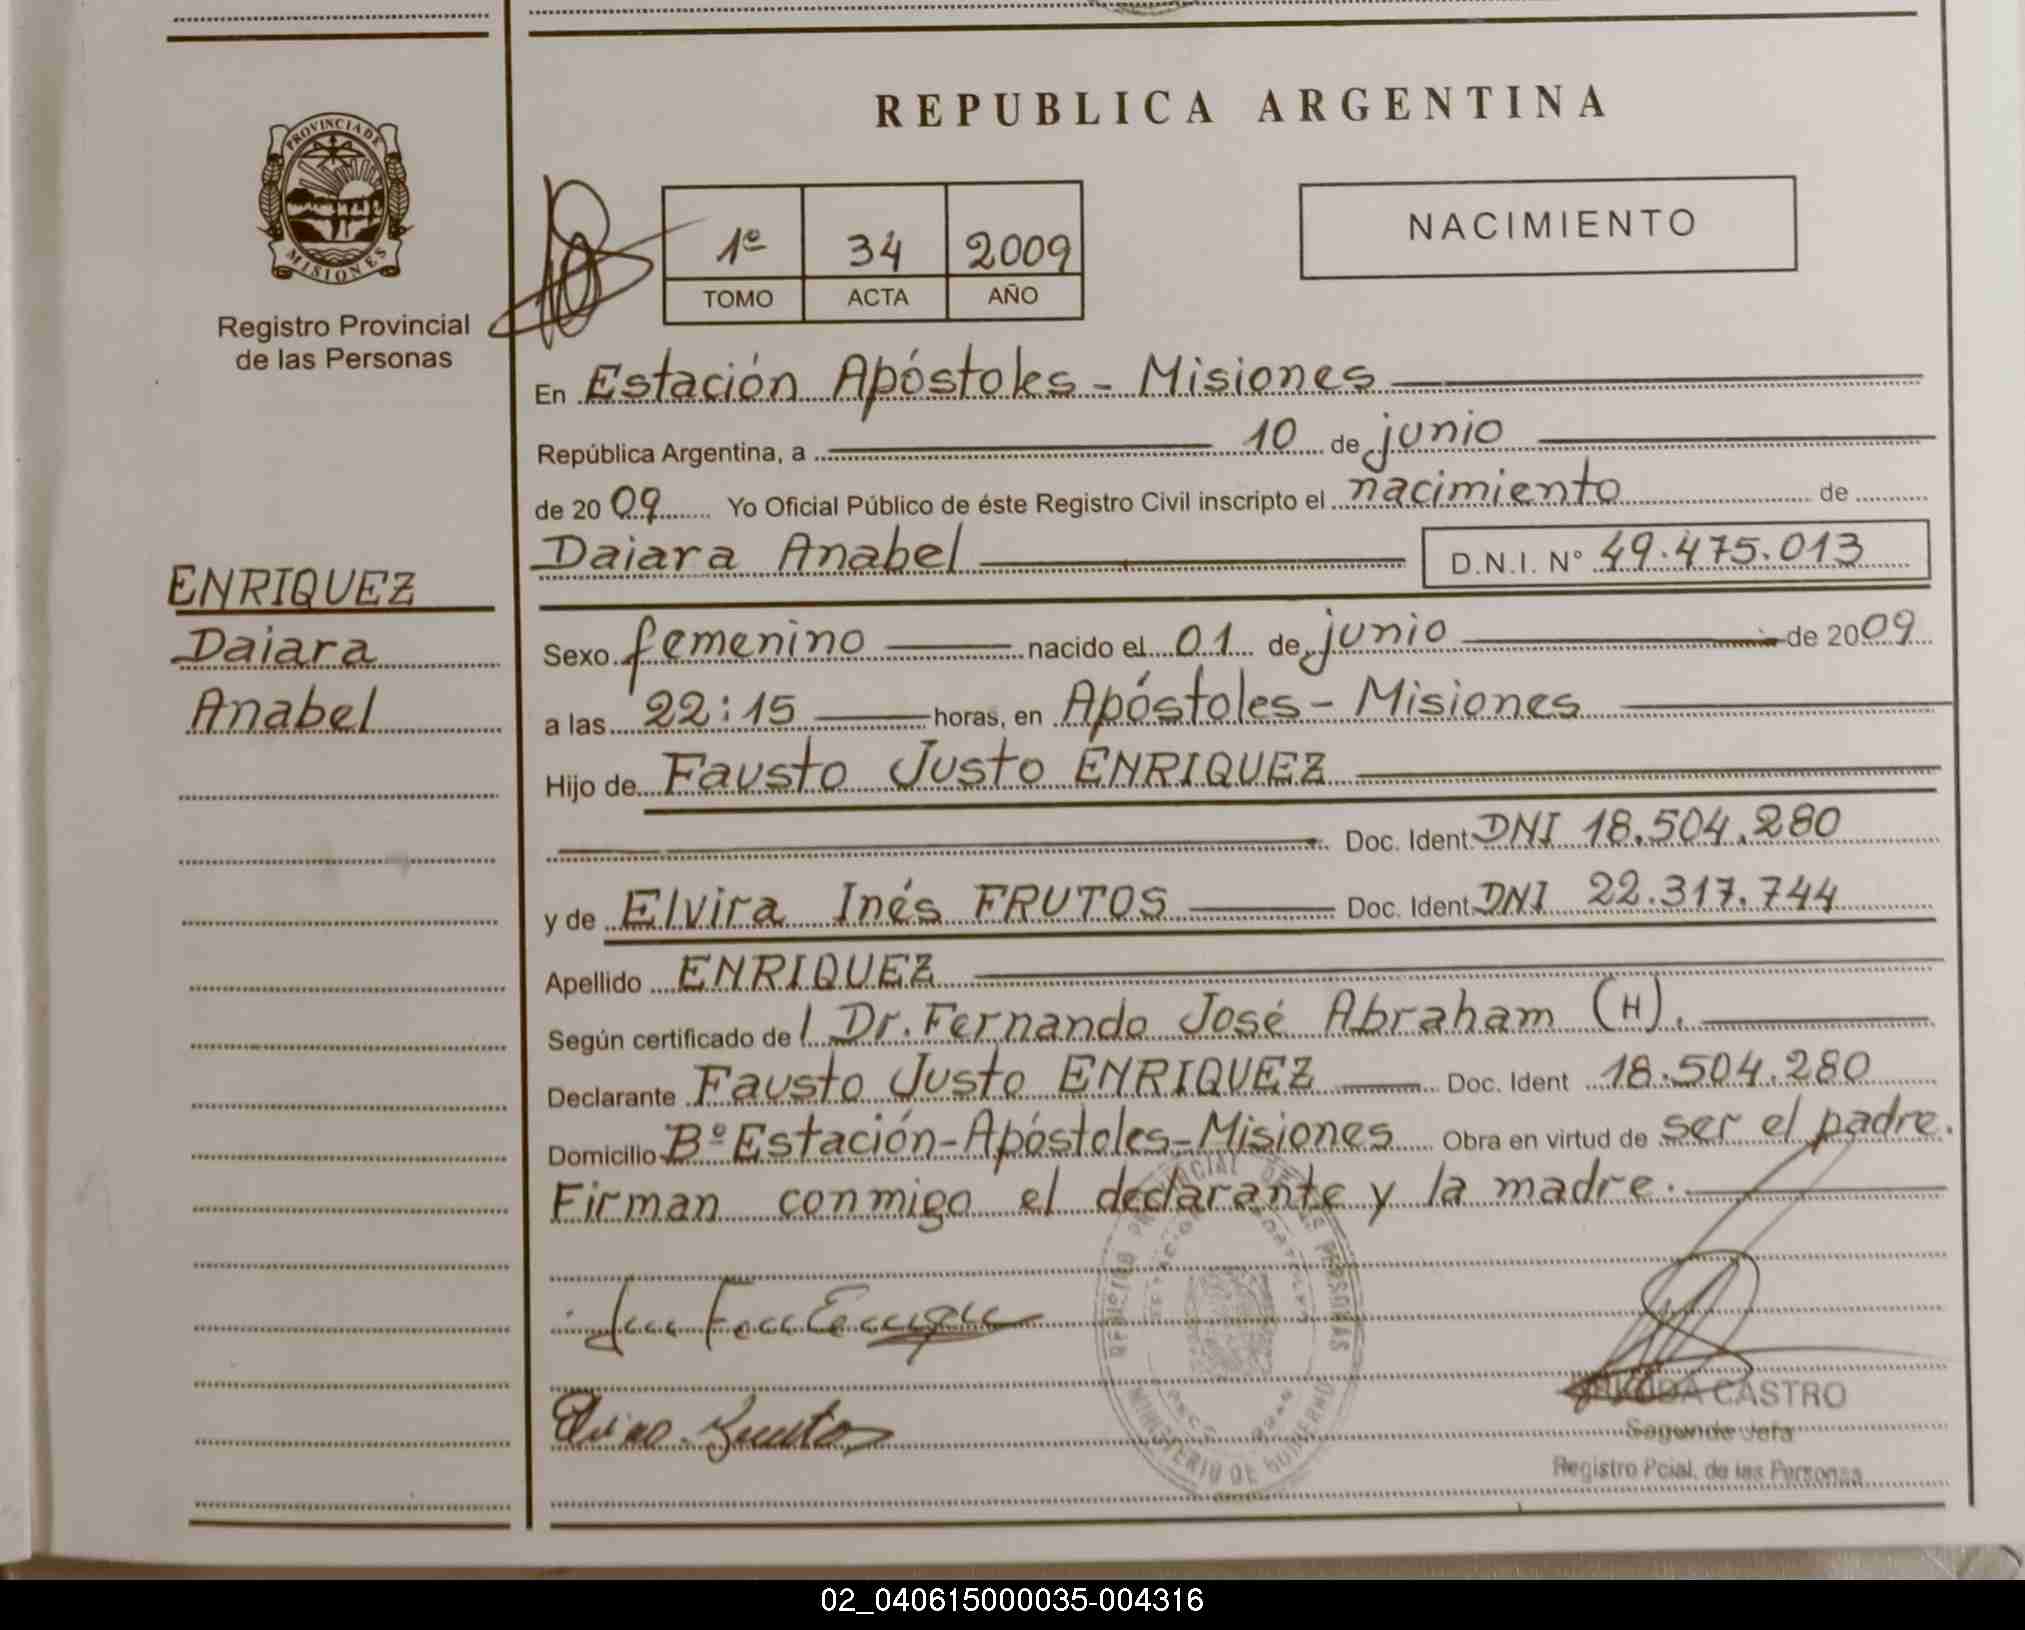 REPUBLICA ARGENTINA
PROVINCIA DE
MISIONES
Registro Provincial
de las Personas
1º 34 2009
TOMO ACTA AÑO
NACIMIENTO
En Estación Apóstoles - Misiones
República Argentina, a 10 de junio
de 2009 Yo Oficial Público de éste Registro Civil inscripto el nacimiento de
Daiara Anabel D.N.I. Nº 49.475.013
ENRIQUEZ
Daiara
Anabel
Sexo femenino nacido el 01 de junio de 2009
a las 22:15 horas, en Apóstoles - Misiones
Hijo de Fausto Justo ENRIQUEZ
Doc. Ident. DNI 18.504.280
y de Elvira Inés FRUTOS Doc. Ident. DNI 22.317.744
Apellido ENRIQUEZ
Según certificado de l Dr. Fernando José Abraham (H).
Declarante Fausto Justo ENRIQUEZ Doc. Ident 18.504.280
Domicilio Bº Estación-Apóstoles-Misiones Obra en virtud de ser el padre.
Firman conmigo el declarante y la madre.
REGISTRO PROVINCIAL DE LAS PERSONAS
MINISTERIO DE GOBIERNO
CASTRO
Segunda Jefa
Registro Pcial. de las Personas
02_040615000035-004316